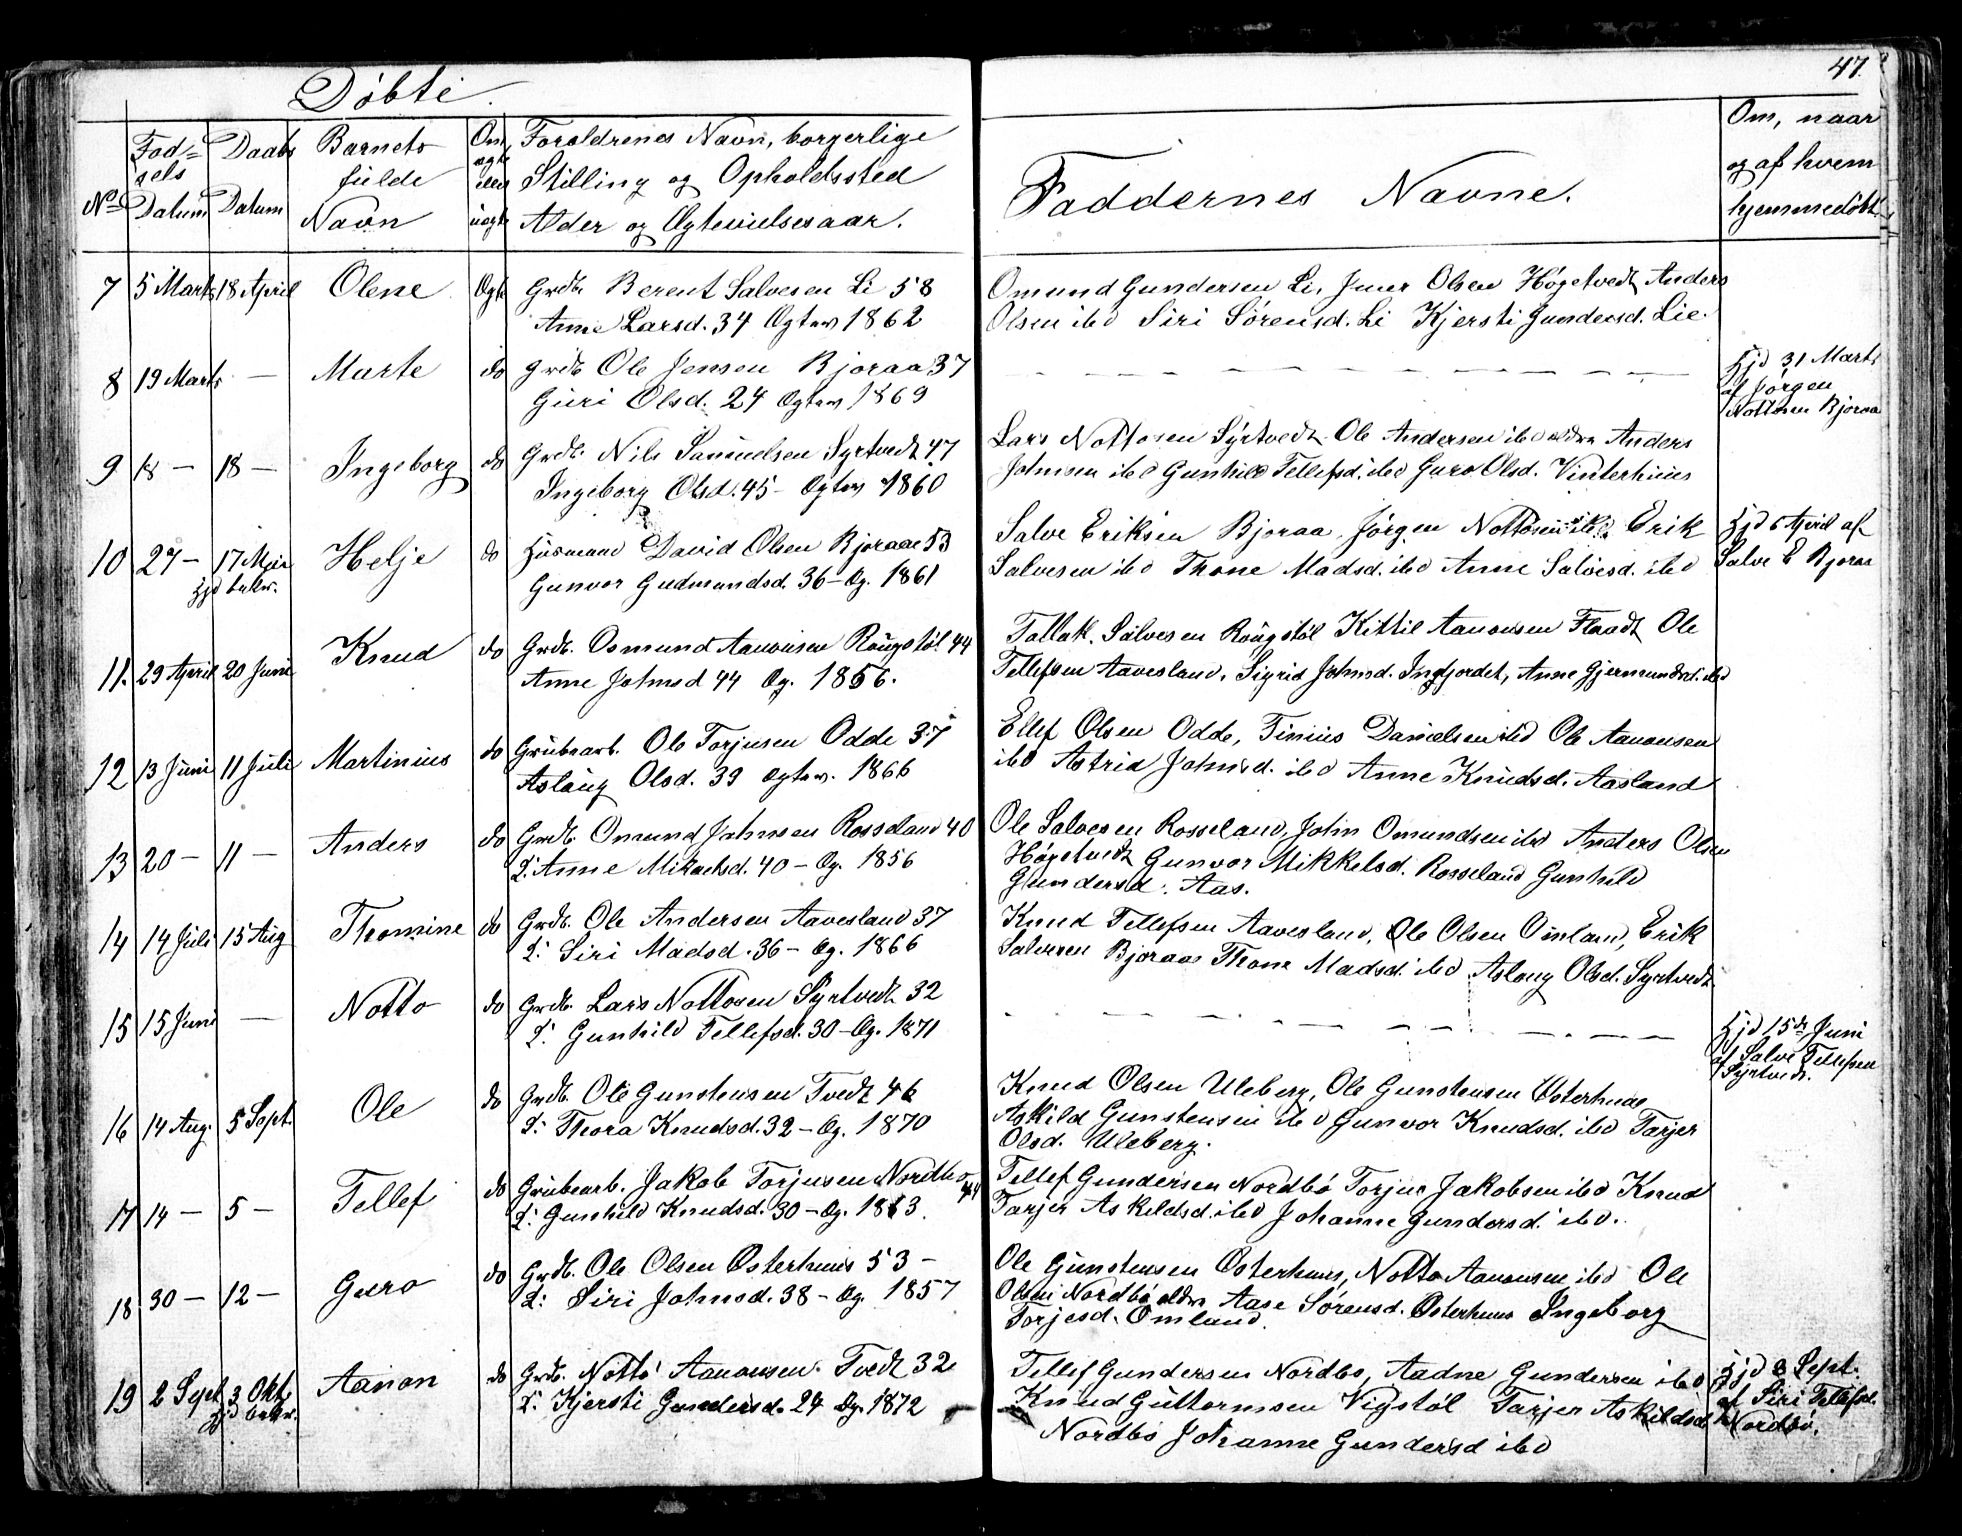 47.
Døbte.
No
Fød-
sels
Datum
Daabs
Datum
Barnets
fulde
Navn
Om
ægte
eller
uægte
Forældrenes Navn, borgerlige
Stilling og Opholdssted
Alder og Ægtevielsesaar.
Faddernes Navne.
Om, naar
og af hvem
hjemmedøbt
7 5 Marts 18 April Olene Ægte Grdb. Berent Salvesen Li 58
Anne Larsd. 34 Ægtev 1862
Omund Gundersen Li, Jver Olsen Høgetvedt Anders
Olsen ibd Siri Sørensd. Li Kjersti Gundersd. Lie.
8 19 Marts — Marte do Grdb Ole Jensen Bjoraa 37
Guri Olsd. 24 Ægtev 1869
— — — — — — — — —
Hjd 31 Marts
af Jørgen
Nottosen Bjoraa
9 18 — 18 — Ingeborg do Grdb. Nils Samuelsen Syrtvedt 47
Ingeborg Olsd. 45 - Ægtev 1860
Lars Nottosen Syrtvedt Ole Andersen ibd ældre Anders
Johnsen ibd Gunhild Tellefsd. ibd Guro Olsd. Vinterhuus
10 27 — 17 Mai Helje do Husmand David Olsen Bjoraae 53
hjd bekr. Gunvor Gudmundsd. 36 - Æg. 1861
Salve Eriksen Bjoraa Jørgen Nottosen ibd. Erik
Salvesen ibd Thone Madsd. ibd Anne Salvesd. ibd
Hjd 6 April af
Salve E Bjoraa
11. 29 April 20 Juni Knud do Grdb. Osmund Aanonsen Rougstøl 44
Anne Johnsd 44 Æg. 1856.
Tallak. Salvesen Rougstøl Kittil Aanonsen Flaadt Ole
Tellefsen Aavesland, Sigrid Johnsd. Ingfjordet, Anne Gjermundsd. ibd
12 13 Juni 11 Juli Martinius do Grubearb. Ole Torjusen Odde 37
Aslaug Olsd. 39 Ægtev. 1866
Ellef Olsen Odde, Tinius Danielsen ibd Ole Aanonsen
ibd Astrid Johnsd. ibd Anne Knudsd. Aasland
13 20 — 11 — Anders do Grdb. Omund Johnsen Rosseland 40
L: Anne Mikaelsd. 40 — Æg. 1856
Ole Salvesen Rosseland, John Omundsen ibd Anders Olsen
Høgetvedt Gunvor Mikkelsd. Rosseland Gunhild
Gundersd. Aas.
14 14 Juli 15 Aug Thomine do Grdb. Ole Andersen Aavesland 37
L: Siri Madsd. 36 — Æg. 1866
Knud Tellefsen Aavesland, Ole Olsen Omland, Erik
Salvesen Bjoraas Thone Madsd. ibd Aslaug Olsd. Syrtvedt
15 15 Juni — Notto do Grdb. Lars Nottosen Syrtvedt 32
L: Gunhild Tellefsd. 30 — Æg. 1871
— — — — — — — — —
Hjd 15de Juni
af Salve Tellefsen
Syrtvedt.
16 14 Aug. 5 Sept. Ole do Grdb. Ole Gunstensen Tvedt 46
L: Thora Knudsd. 32 — Æg. 1870
Knud Olsen Uleberg, Ole Gunstensen Østerhuus
Askild Gunstensen ibd Gunvor Knudsd. ibd Tarjer
Olsd. Uleberg.
17 14 — 5 — Tellef do Grubearb. Jakob Torjusen Nordbø 44
L: Gunhild Knudsd. 30 — Æg. 1863.
Tellef Gundersen Nordbø Torjus Jakobsen ibd Knud
Tarjer Askildsd. ibd Johanne Gundersd. ibd.
18 30 — 12 — Guro do Grdb. Ole Olsen Østerhuus 53 —
L: Siri Johnsd. 38 — Æg. 1857
Ole Gunstensen Østerhuus, Notto Aanonsen ibd Ole
Olsen Nordbø ældre Aase Sørensd. Østerhuus Ingeborg
Torjesd. Omland.
19 2 Sept 3 Okt. Aanon do Grdb. Notto Aanonsen. Tvedt 32
hjd bekr. L: Kjersti Gundersd. 24 Æg. 1872
Tellef Gundersen Nordbø, Aadne Gundersen ibd
Knud Guttormsen Vigstøl Tarjer Askildsd.
Nordbø Johanne Gundersd ibd
Hjd 3 Sept.
af Siri Tellefsd.
Nordbø.